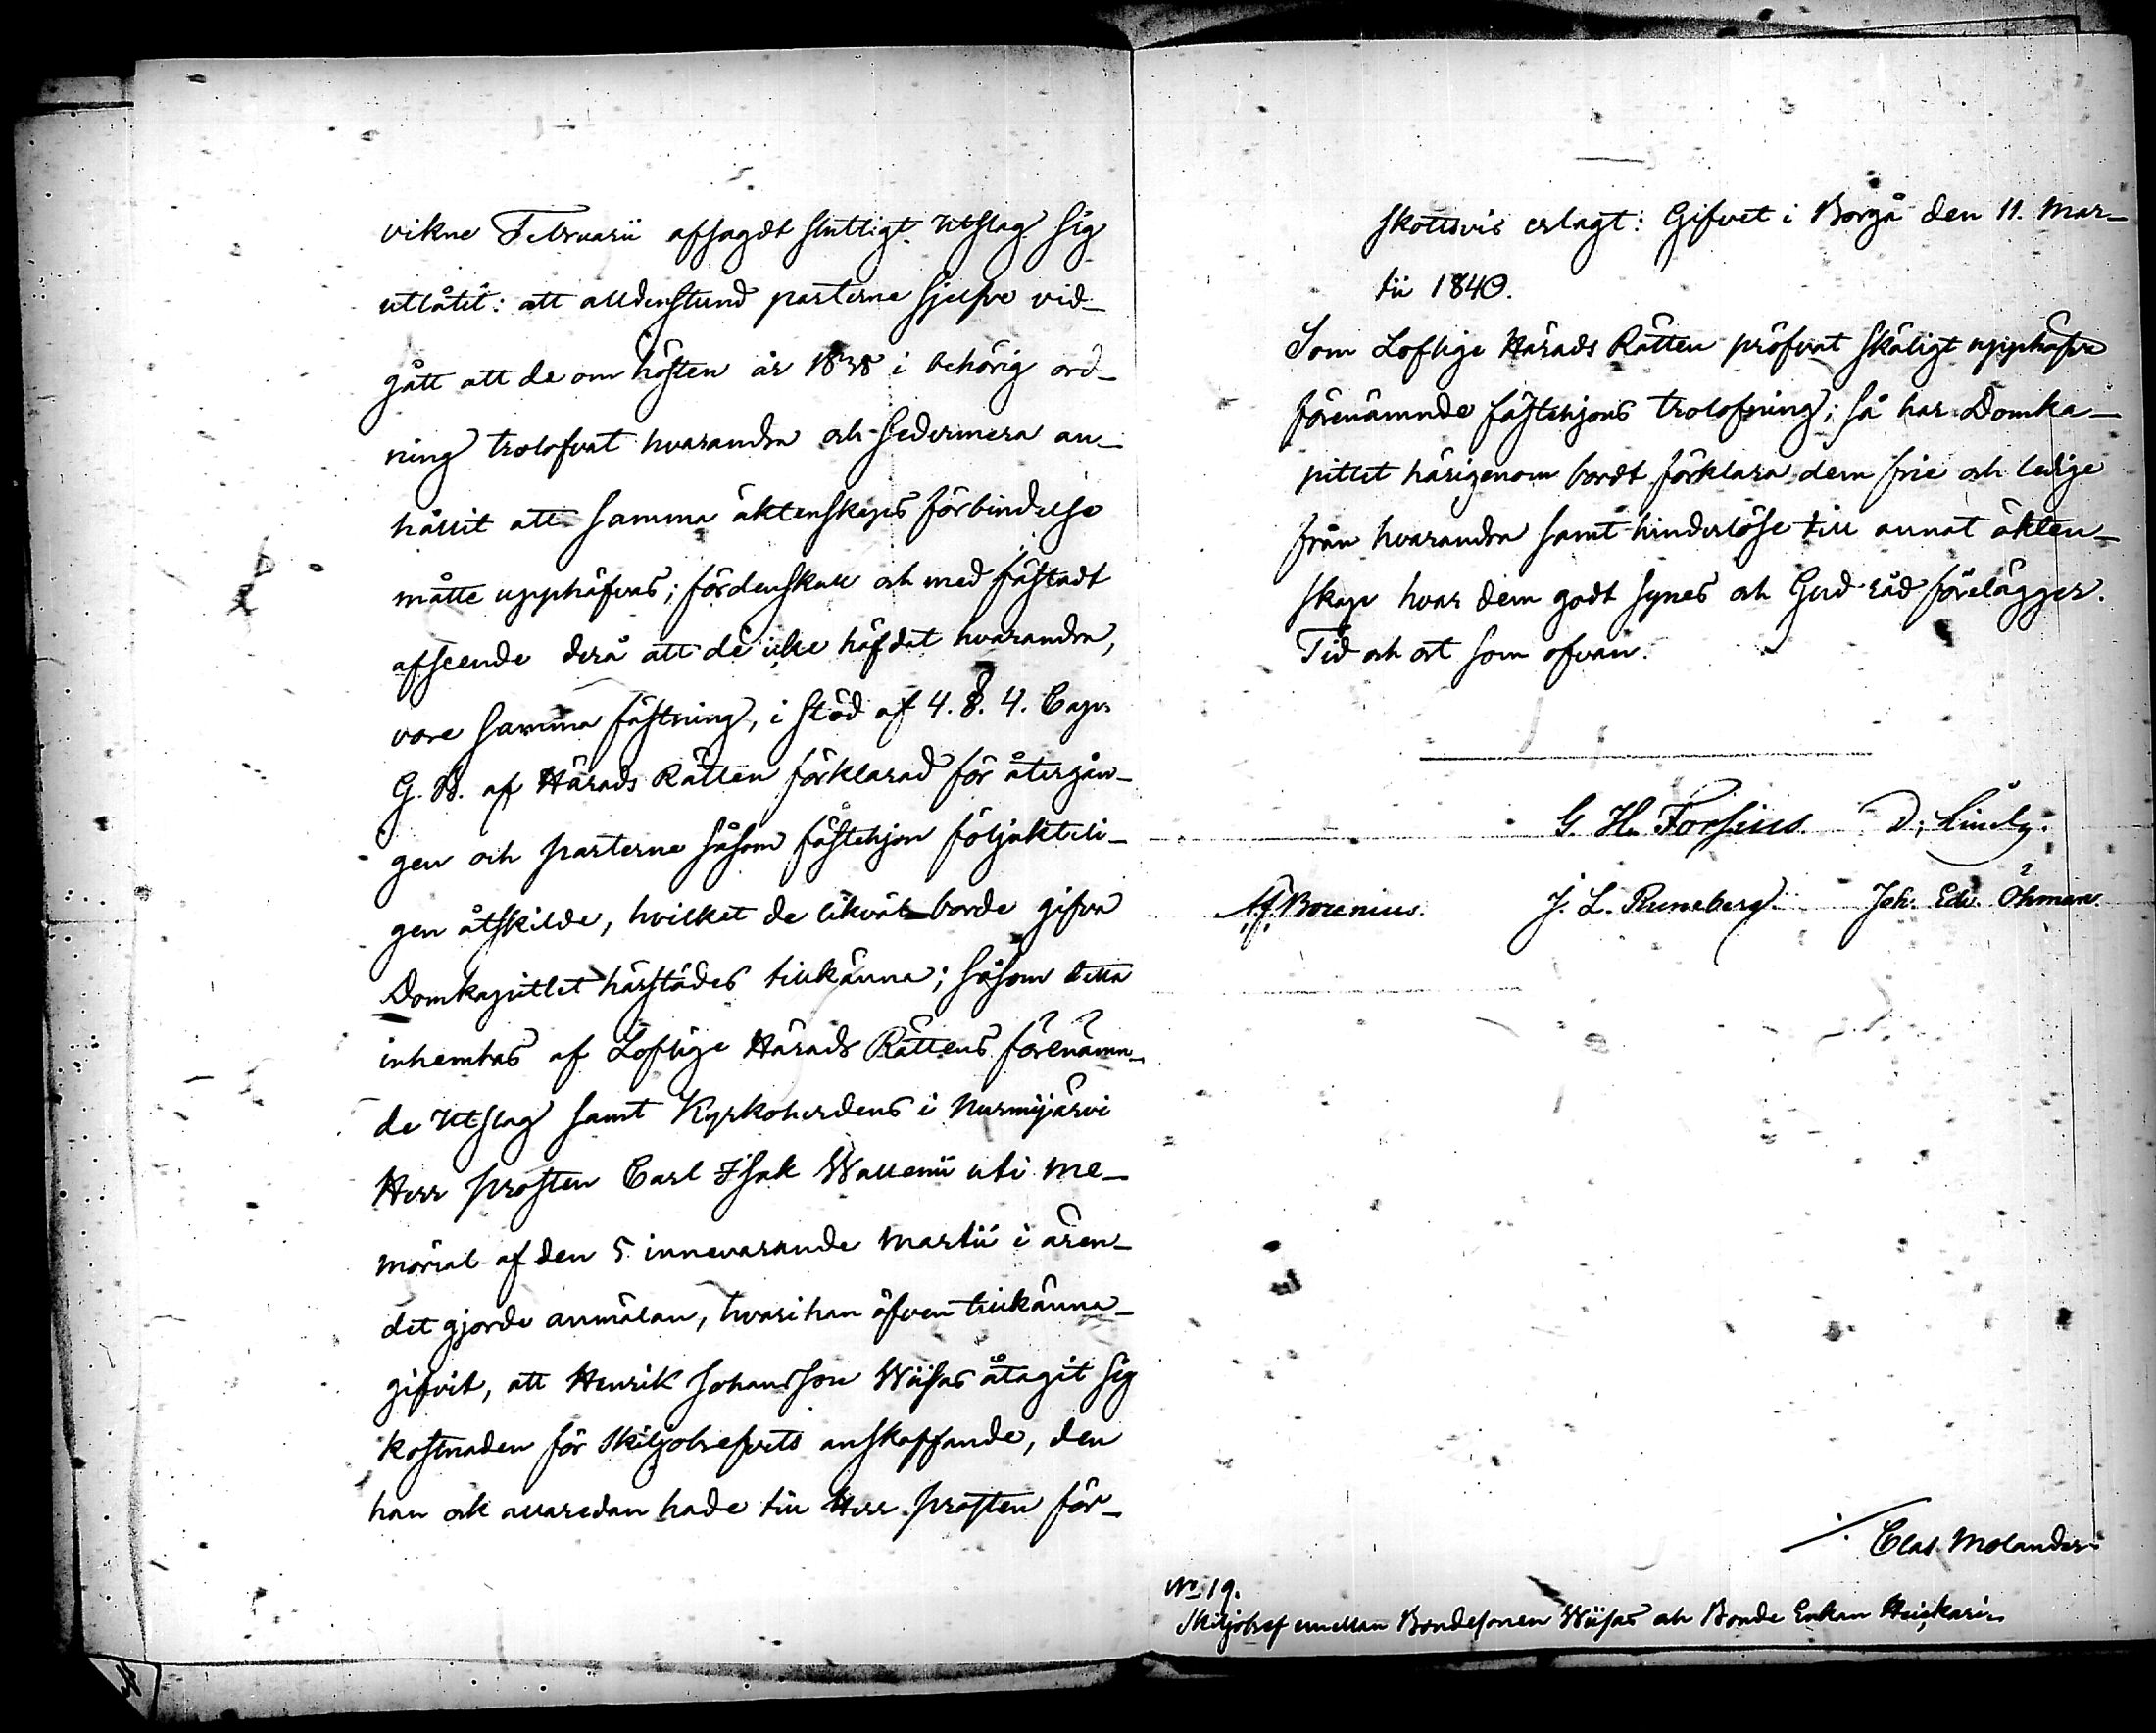 vikne Februarii afsagdt slutligt Utslag sig
utlåtit: att alldenstund parterne sjelfve vid-
gått att de om hösten år 1838 i behörig ord-
ning trolofvat hvarandra och sedermera an-
hållit att samma äktenskaps förbindelse
måtte upphäfvas; fördenskull och med fästadt
afseende derå att de icke häfdat hvarandra,
vore samma fästning, i stöd af 4. §. 4. Cap.
G. B. af Härads Rätten förklarad för återgån-
gen och parterne såsom fästehjon följakteli-
gen åtskilde, hvilket de likväl borde gifva
Domkapitlet härstädes tillkänna; såsom detta
inhemtas af Loflige Härads Rättens förenämn-
de Utslag samt Kyrkoherdens i Nurmijärvi
Herr Prosten Carl Isak Wallenii uti Me-
morial af den 5 innevarande Martii i ären-
det gjorde anmälan, hvari han äfven tillkänna-
gifvit, att Henrik Johansson Wiisas åtagit sig
kostnaden för Skiljobrefvets anskaffande, den
han ock allaredan hade till Herr Prosten för-
skottsvis erlagt: Gifvet i Borgå den 11. Mar-
tii 1840.
Som Loflige Härads Rätten pröfvat skäligt upphäfva
förenämnde fästehjons trolofning; så har Domka-
pitlet härigenom bordt förklara dem frie och ledige
från hvarandra samt hinderlöse till annat äkten-
skap hvar dem godt synes och Gud råd förelägger.
Tid och ort som ofvan.
G. H. Forsius. D.
Borenius. J. L. Runeberg. Joh. Edv. Öhman.
Clas Molander
No 19.
Skiljobref emellan Bondesonen Wiisas och Bonde Enkan